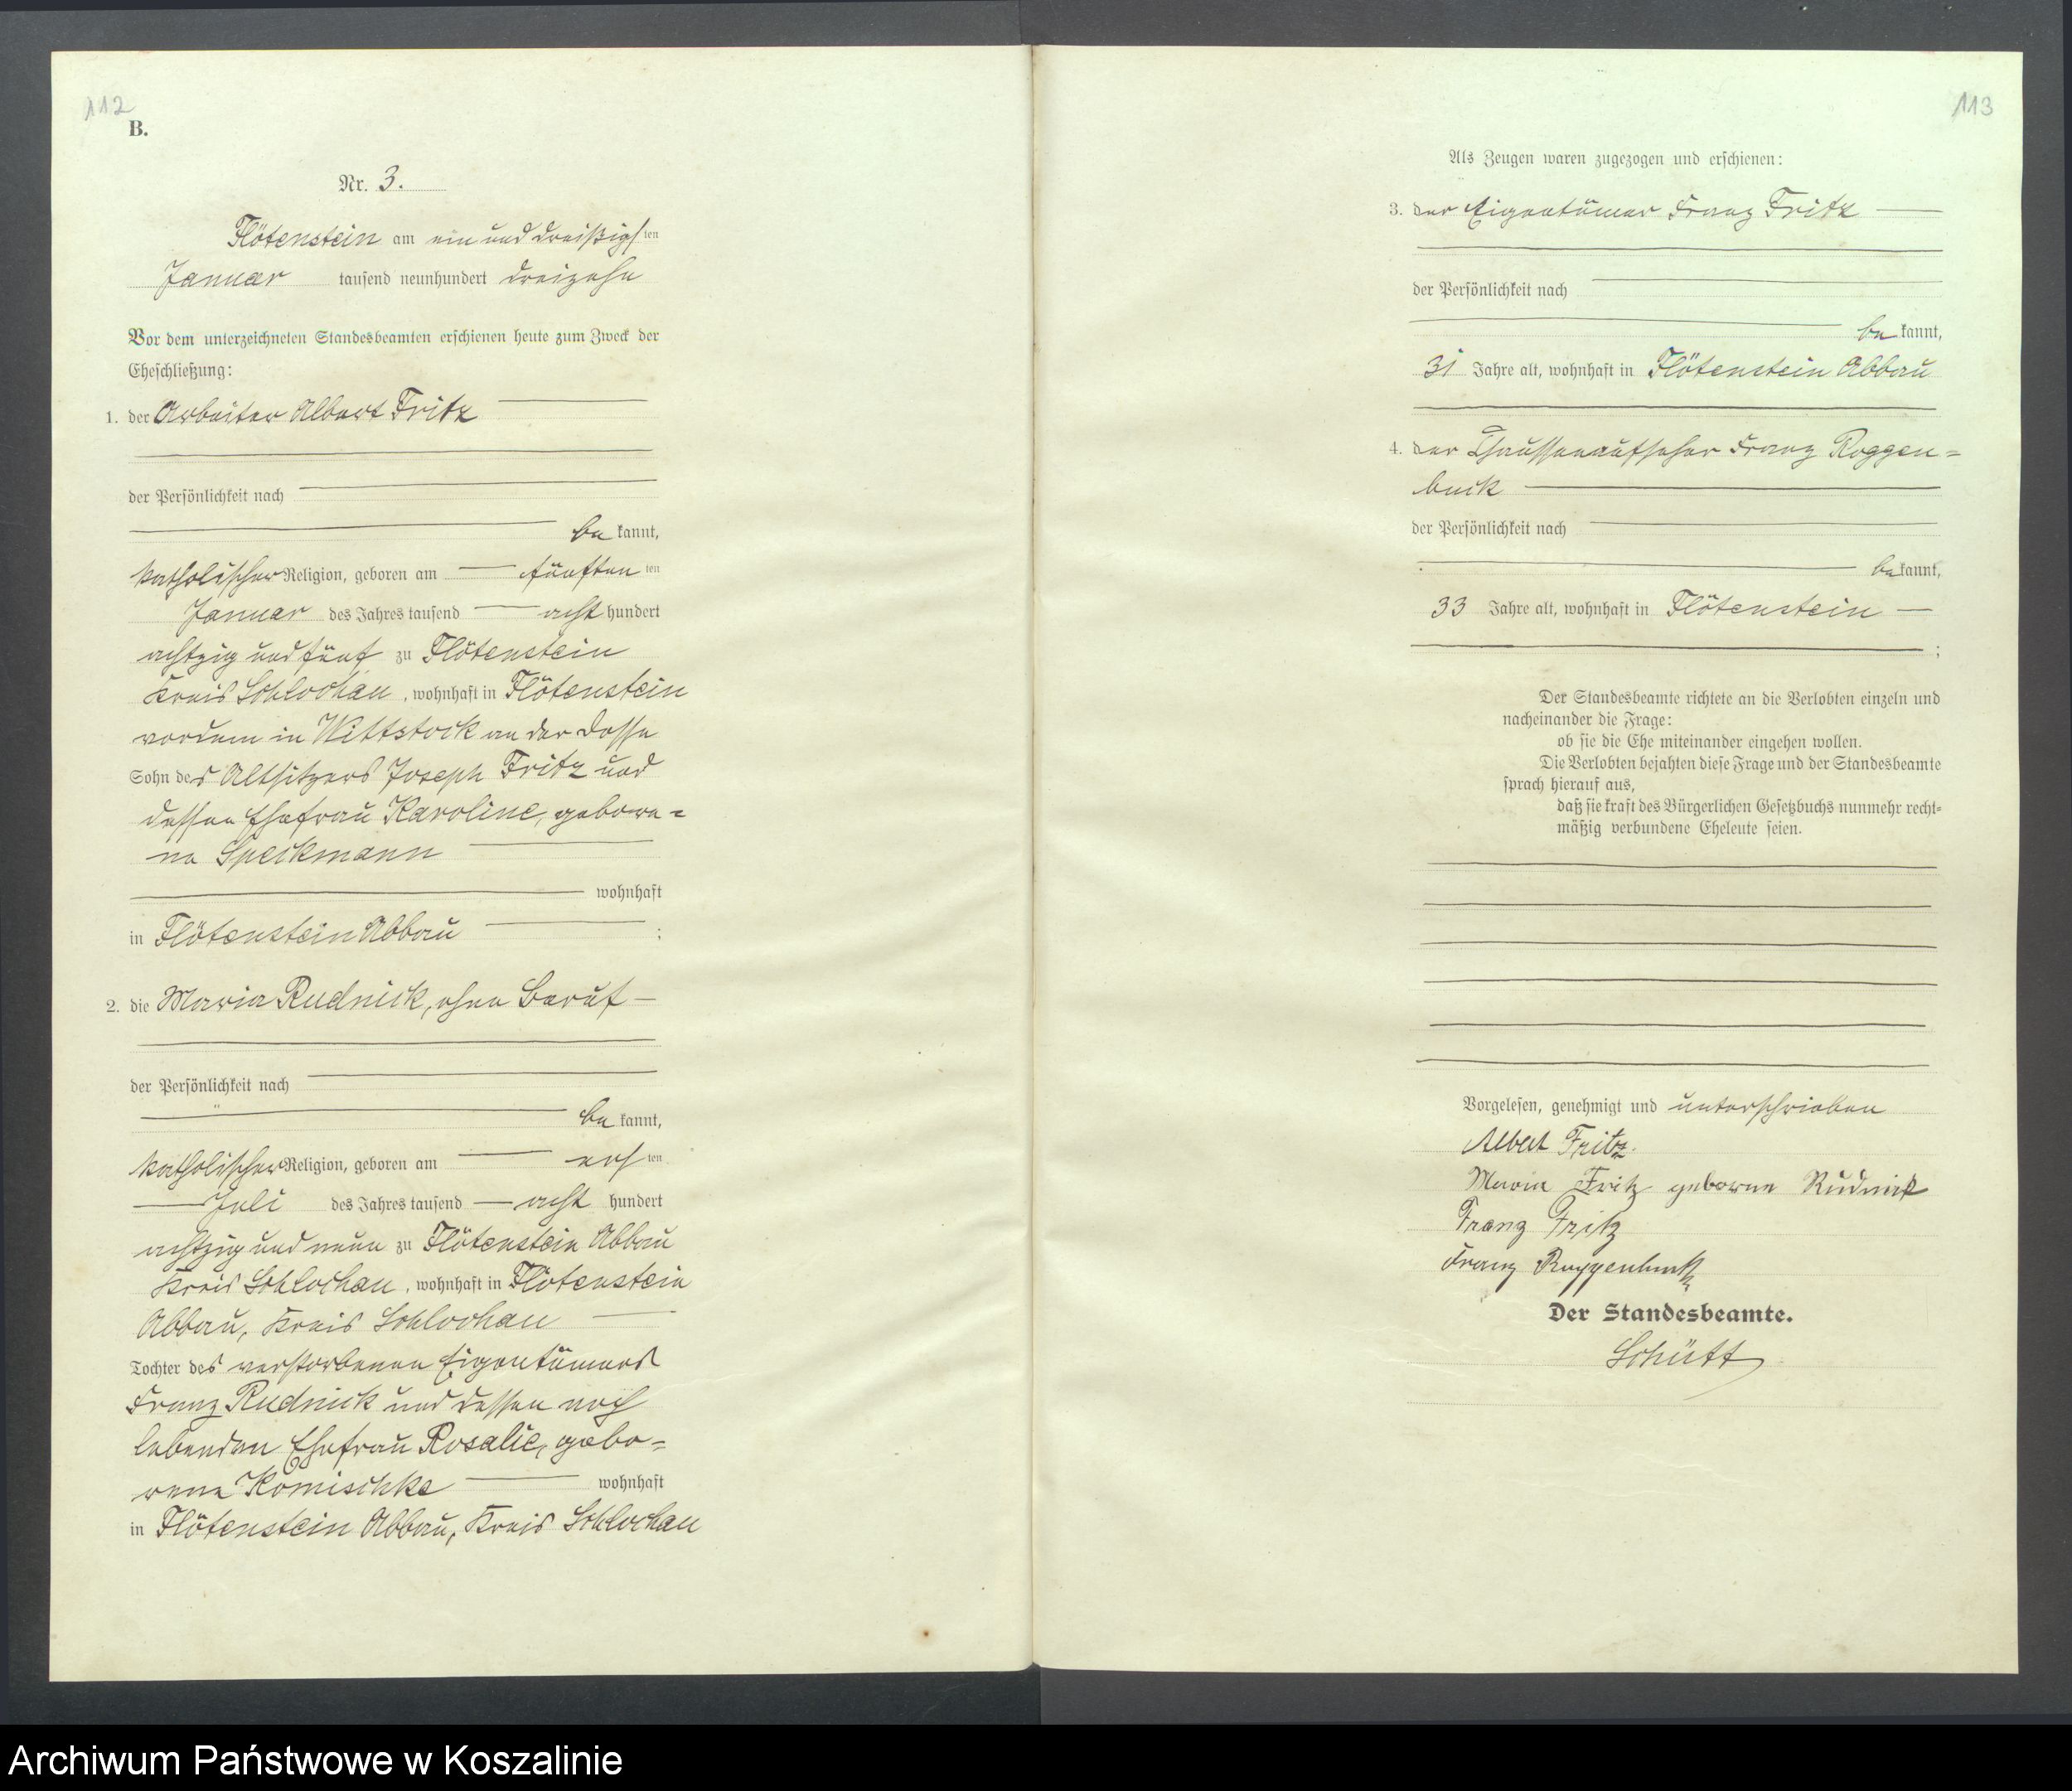 112
B.
Nr. 3.
Flötenstein am ein und dreißigsten
Januar tausend neunhundert dreizehn
Vor dem unterzeichneten Standesbeamten erschienen heute zum Zweck der
Eheschließung:
1. der Arbeiter Albert Fritz
der Persönlichkeit nach
be kannt,
katholischer Religion, geboren am fünften ten
Januar des Jahres tausend acht hundert
achtzig und fünf zu Flötenstein
Kreis Schlochau, wohnhaft in Flötenstein
vordem in Wittstock an der Dosse
Sohn des Altsitzers Joseph Fritz und
dessen Ehefrau Karoline, gebore=
ne Speckmann
wohnhaft
in Flötenstein Abbau ;
2. die Maria Rudnick, ohne Beruf
der Persönlichkeit nach
be kannt,
katholischer Religion, geboren am ersten
Juli des Jahres tausend acht hundert
achtzig und neun zu Flötenstein Abbau
Kreis Schlochau, wohnhaft in Flötenstein
Abbau, Kreis Schlochau
Tochter des verstorbenen Eigentümers
Franz Rudnick und dessen noch
lebenden Ehefrau Rosalie, gebo=
rene Komischke wohnhaft
in Flötenstein Abbau, Kreis Schlochau
113
Als Zeugen waren zugezogen und erschienen:
3. der Eigentümer Franz Fritz
der Persönlichkeit nach
be kannt,
31 Jahre alt, wohnhaft in Flötenstein Abbau
4. der Chausseeaufseher Franz Roggen=
buck
der Persönlichkeit nach
be kannt,
33 Jahre alt, wohnhaft in Flötenstein
;
Der Standesbeamte richtete an die Verlobten einzeln und
nacheinander die Frage:
ob sie die Ehe miteinander eingehen wollen.
Die Verlobten bejahten diese Frage und der Standesbeamte
sprach hierauf aus,
daß sie kraft des Bürgerlichen Gesetzbuchs nunmehr recht=
mäßig verbundene Eheleute seien.
Vorgelesen, genehmigt und unterschrieben
Albert Fritz.
Maria Fritz geborene Rudnick
Franz Fritz
Franz Roggenbuck
Der Standesbeamte.
Schütt
Archiwum Państwowe w Koszalinie